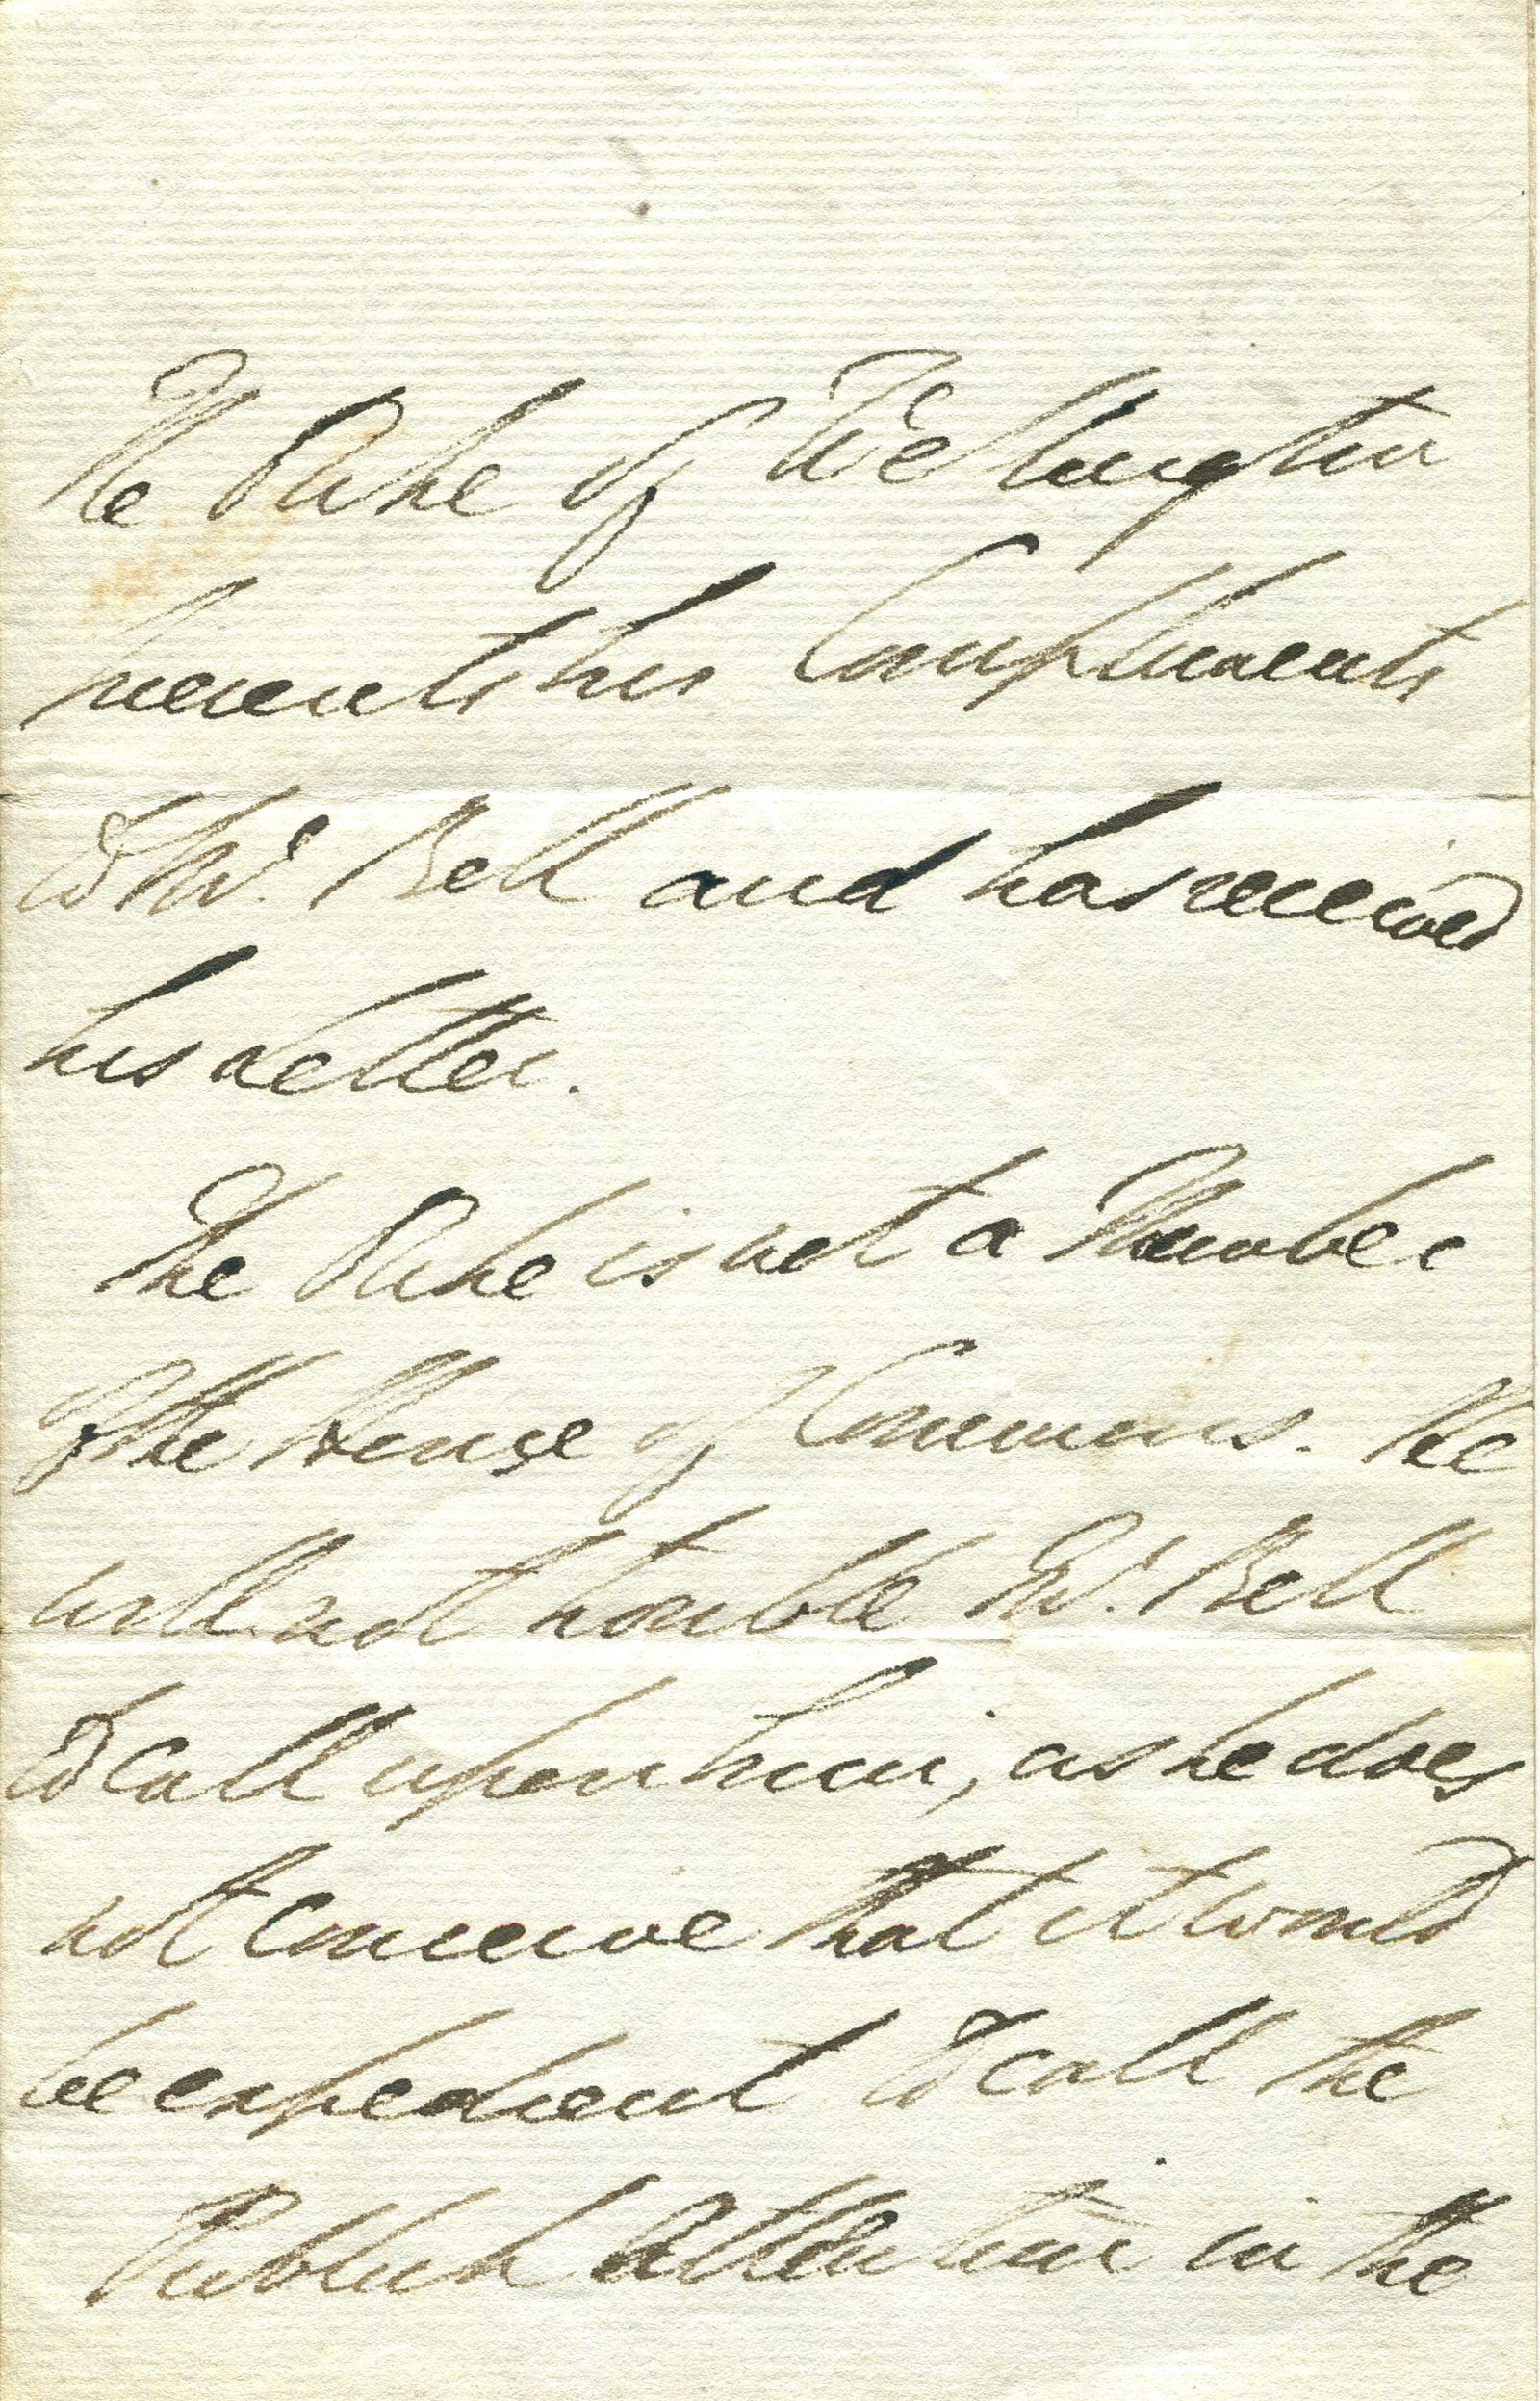 The Duke of Wellington
presents his Compliments
to Mr. Bell and has received
his Letter.
The Duke is not a Member
of the House of Commons. He
will not trouble Mr. Bell
to call upon him; as he does
not conceive that it would
be expedient to call the
Publick Attention in the